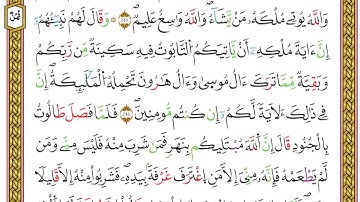 وَاللَّهُ يُؤْتِي مُلْكَهُ مَن يَشَاءُ وَاللَّهُ وَاسِعٌ عَلِيمٌ ﴿٢٤٧﴾ وَقَالَ لَهُمْ نَبِيُّهُمُ
إِنَّ ءَايَةَ مُلْكِهِ أَن يَأْتِيَكُمُ التَّابُوتُ فِيهِ سَكِينَةٌ مِّن رَّبِّكُمْ
وَبَقِيَّةٌ مِّمَّا تَرَكَ ءَالُ مُوسَىٰ وَءَالُ هَارُونَ تَحْمِلُهُ الْمَلَائِكَةُ إِنَّ
فِي ذَٰلِكَ لَآيَةً لَّكُمْ إِن كُنتُم مُّؤْمِنِينَ ﴿٢٤٨﴾ فَلَمَّا فَصَلَ طَالُوتُ
بِالْجُنُودِ قَالَ إِنَّ اللَّهَ مُبْتَلِيكُم بِنَهَرٍ فَمَن شَرِبَ مِنْهُ فَلَيْسَ مِنِّي وَمَن
لَّمْ يَطْعَمْهُ فَإِنَّهُ مِنِّي إِلَّا مَنِ اغْتَرَفَ غَرْفَةً بِيَدِهِ فَشَرِبُوا مِنْهُ إِلَّا قَلِيلًا